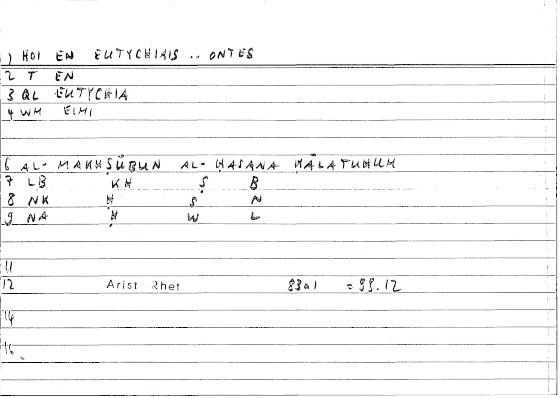 1 HOI EN EUTYCHIAIS .. ONTES
2 T EN
3 QL EUTYCHIA
4 WM EIMI
6 AL- MAKHṢŪBUN AL- ḤASANA ḤĀLATUHUM
7 LB KH Ṣ B
8 NK Ḥ S N
9 NA Ḥ W L
11
12 Arist Rhet 83a1 = 99.12
14
16